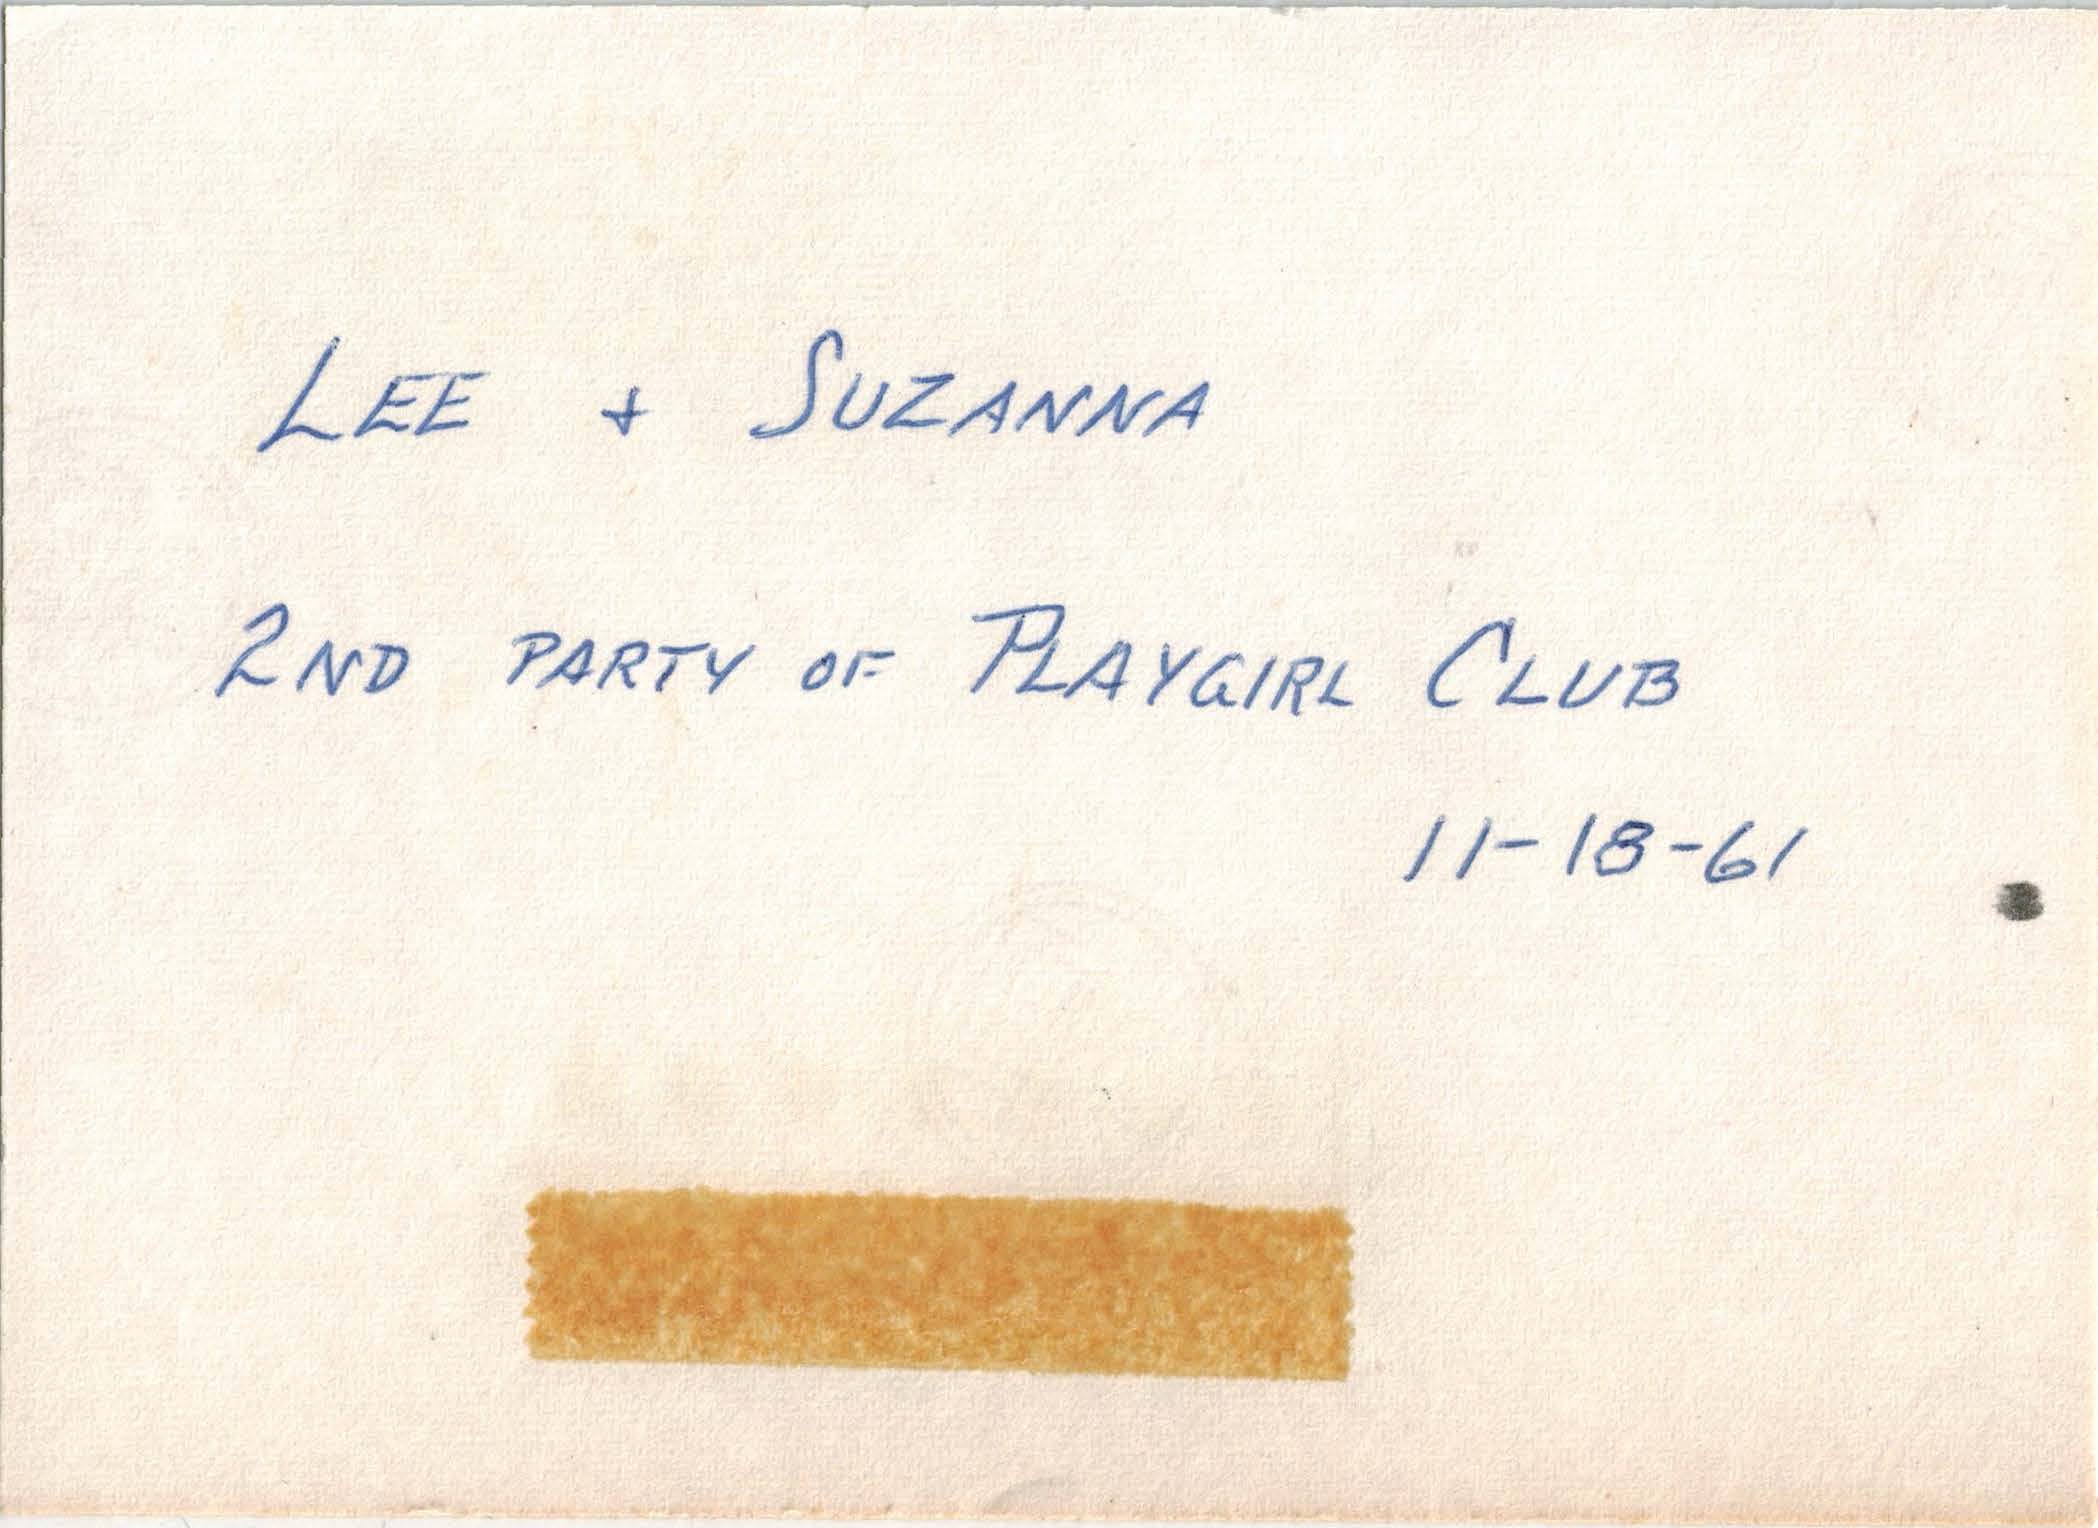 LEE + SUZANNA
2ND PARTY OF PLAYGIRL CLUB
11-18-61